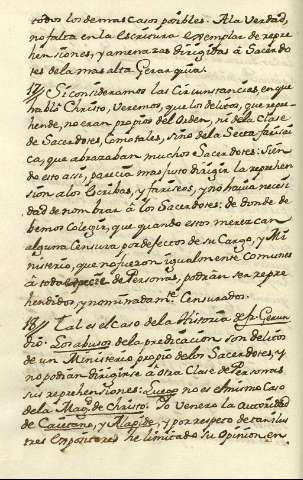 todos los demas casos posibles. A la Verdad,
no falta en la Escritura exemplar de repre
hensiones, y amenazas dirigidas à Sacerdo
tes de la mas alta Gerarquia.
17// Si consideramos las Circunstancias, en que
habla Christo, Veremos, que los delitos, que repre
hende, no eran propios del Orden, ni de la Clase
de Sacerdotes, como tales, sino de la Secta farisai
ca, que abrazaban muchos Sacerdotes: Sien
do esto asi, parecia mas justo dirigir la reprehen
sion a los Escribas, y fariseos, y no havia necesi
dad de nombrar à los Sacerdotes: de donde de
bemos Colegir, que quando estos merezcan
alguna Censura por defectos de su Cargo, y Mi
nisterio, que no fueron igualmente Comunes
à toda especie de Personas, podran ser repre
hendidos, y nominadamte. Censurados.
18// Tal es el caso de la Historia de fr. Gerun
dio. Los abusos de la predicacion son delitos
de un Ministerio propio de los Sacerdotes, y
no podran dirigirse à otra Clase de Personas
sus reprehensiones: Luego no es el mismo Caso
de la Mag. de Christo. Yo Venero la Autoridad
de Cayetano, y Alapide, y por respeto de tan ilus
tres Expositores he limitado su Opinion, en